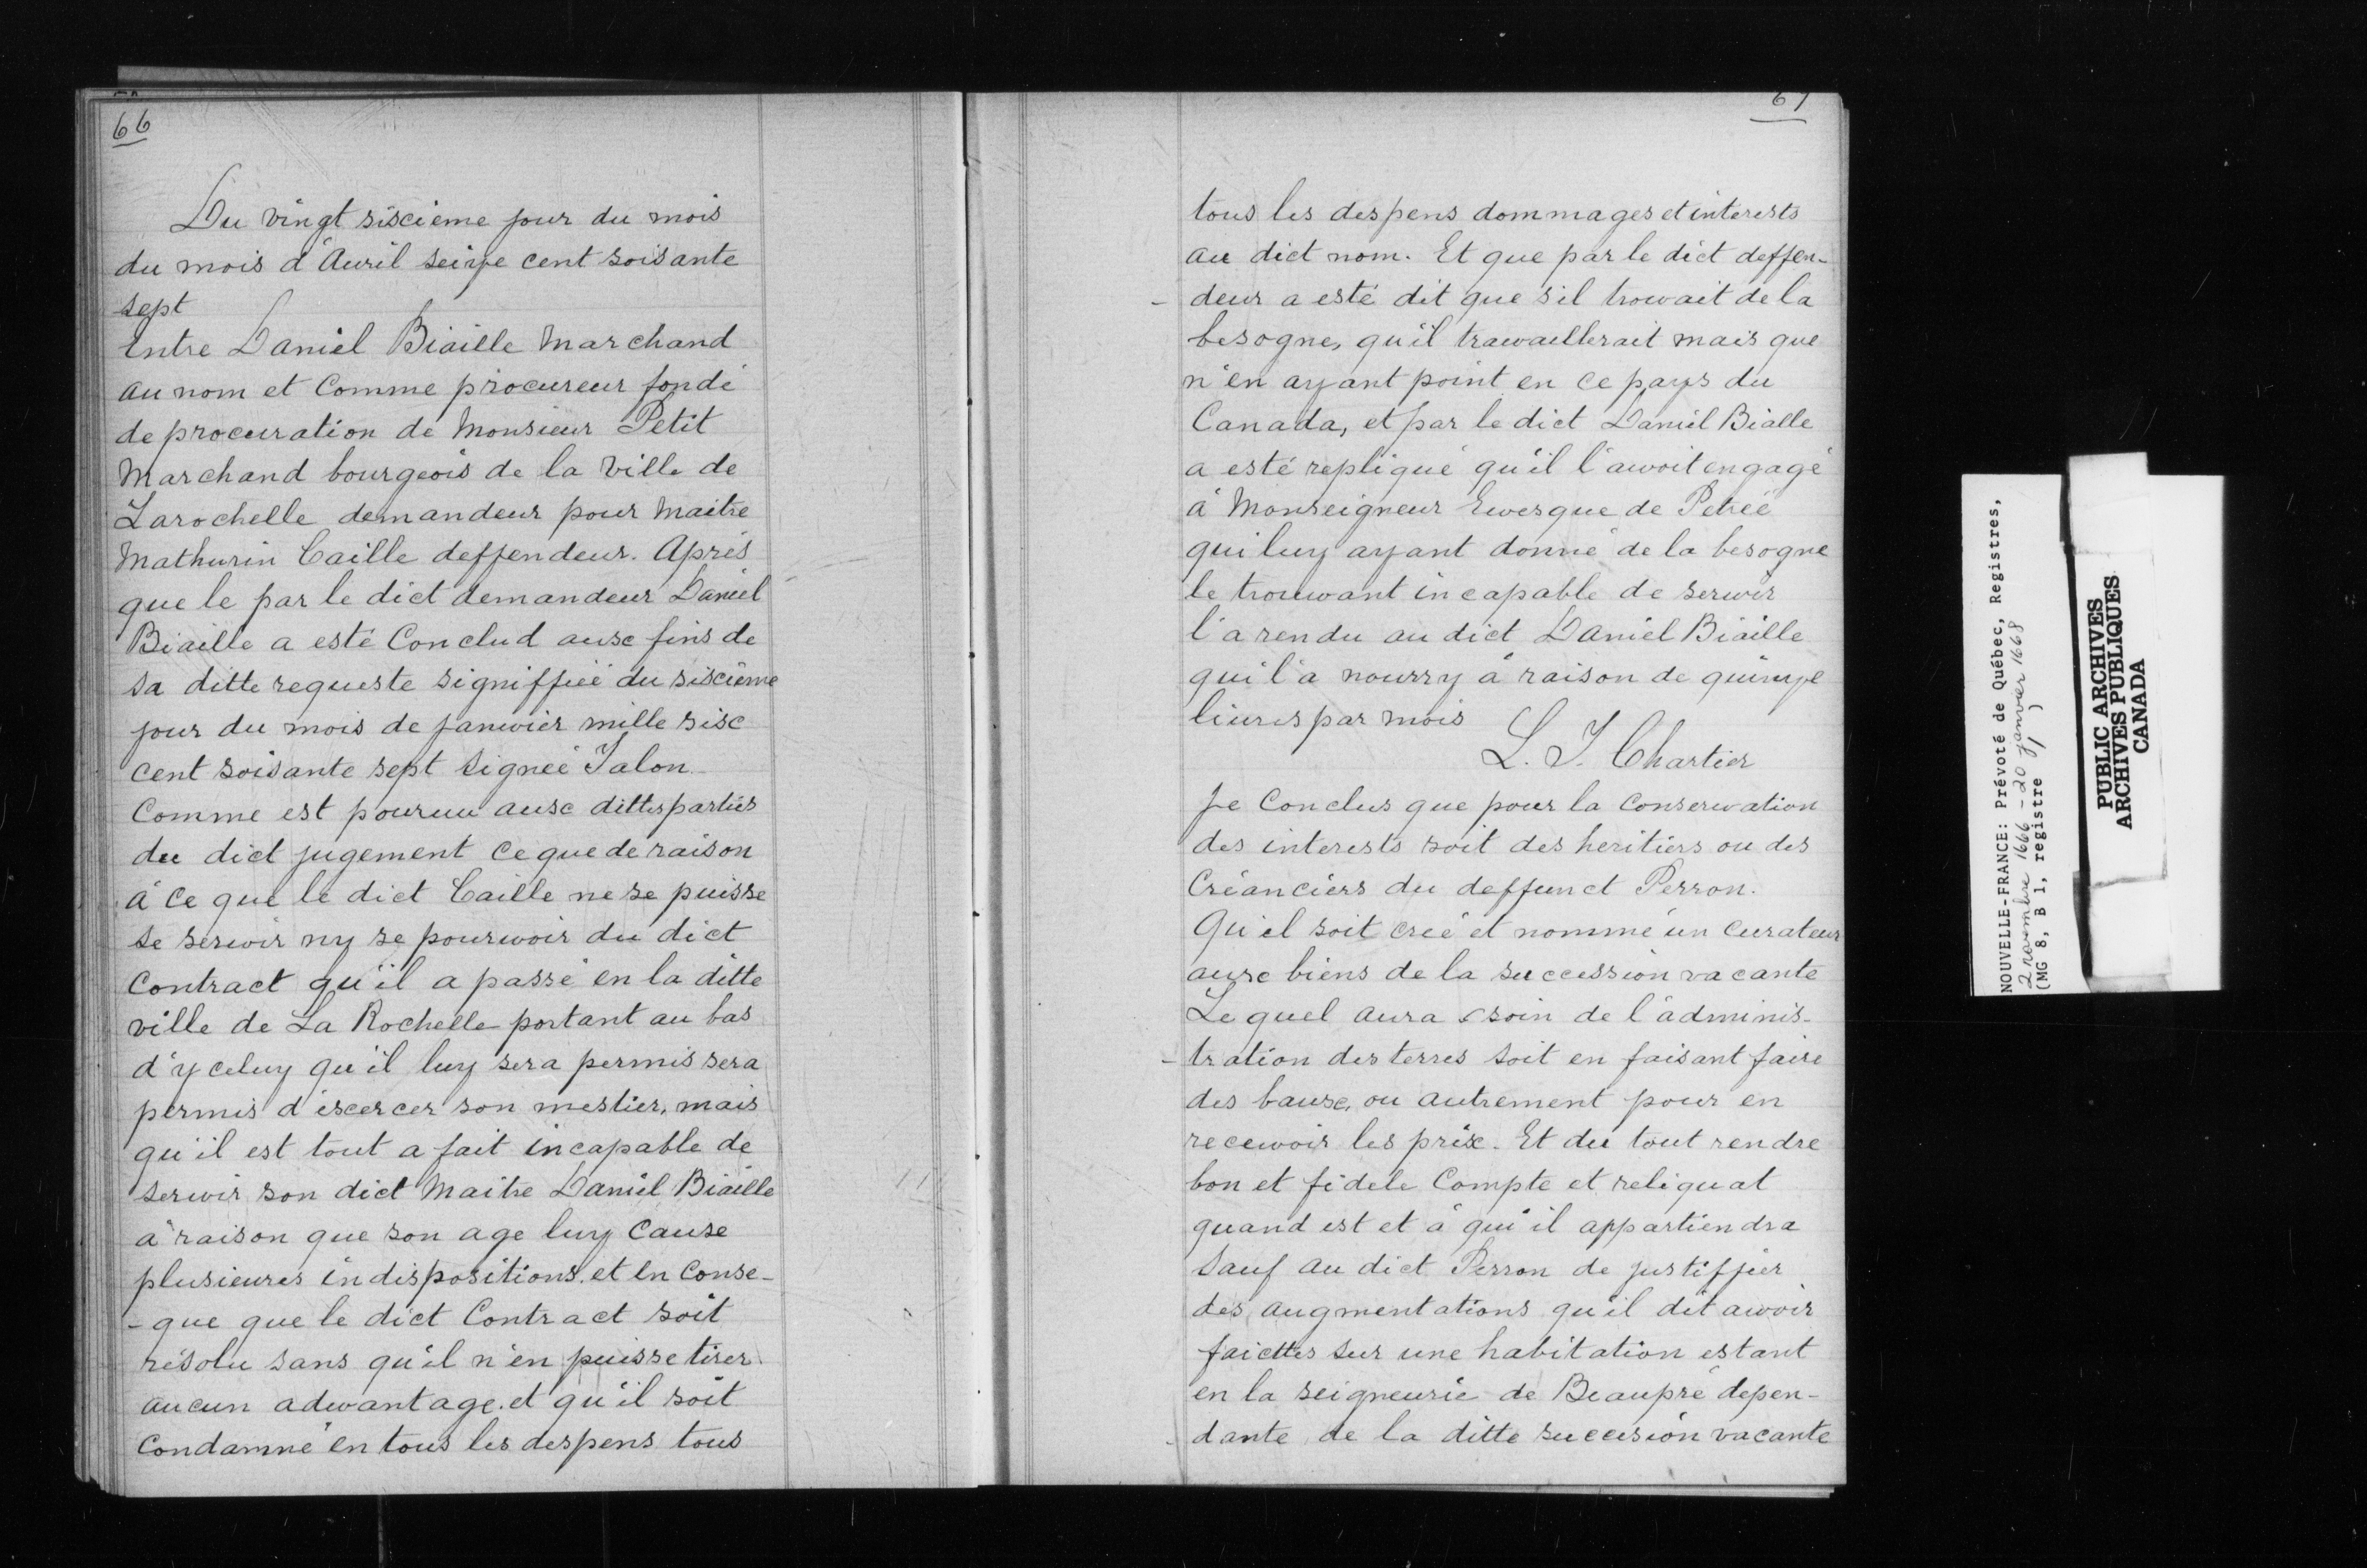 66
Du vingt siscième jour du mois
du mois d'Auril seize cent soisante
sept
Entre Daniel Biaille Marchand
au nom et Comme procureur fondé
de procuration de Monsieur Petit
Marchand bourgeois de la Ville de
Larochelle demandeur pour Maitre
Mathurin Caille deffendeur. Après
que le par le dict demandeur Daniel
Biaille a esté Conclud ausc fins de
sa ditte requeste signiffiée du siscième
jour du mois de januvier mille sisc
cent soisante sept signée Talon
Comme est pouruu ausc dittes parties
du dict jugement Ce que de raison
à Ce que le dict Caille ne se puisse
se seruvir ny se pouruvoir du dict
Contract qu'il a passé en la ditte
ville de La Rochelle portant au bas
d'yceluy qu'il luy sera permis sera
permis d'escercer son mestier, mais
qu'il est tout a fait incapable de
seruvir son dict Maitre Daniel Biaille
à raison que son age luy Cause
plusieures indispositions. et en Conse-
-que que le dict Contract soit
résolu sans qu'il n'en puisse tirer
aucun aduvantage. et qu'il soit
Condamné en tous les despens tous
67
tous les despens dommages et interests
au dict nom. Et que par le dict deffen-
- deur a esté dit que s'il trouvait de la
besogne, qu'il trauvaillerait mais que
n'en ayant point en ce pays du
Canada, et par le dict Daniel Bialle
a esté repliqué qu'il l'auvoit engagé
à Monseigneur Euvesque de Petrée
qui luy ayant donné de la besogne
le trouuvant incapable de seruvir
l'a rendu au dict Daniel Biaille
qui l'a nourry à raison de quinze
liures par mois
L. T. Chartier
Je Conclus que pour la Conseruvation
des interests soit des heritiers ou des
Créanciers du deffunct Perron.
Qu'il soit creé et nommé un Curateur
ausc biens de la succession vacante
Le quel aura soin de l'adminis-
- tration des terres soit en faisant faire
des bausc, ou autrement pour en
receuvoir les prix. Et du tout rendre
bon et fidele Compte et reliquat
quand est et à qui il appartiendra
Sauf au dict Perron de justiffier
des augmentations qu'il dit auvoir
faicttes sur une habitation estant
en la seigneurie de Beaupré depen-
- dante de la ditte succession vacante
NOUVELLE-FRANCE: Prévoté de Québec, Registres,
2 novembre 1666 - 20 janvier 1668
(MG 8, B 1, registre 1)
PUBLIC ARCHIVES
ARCHIVES PUBLIQUES
CANADA